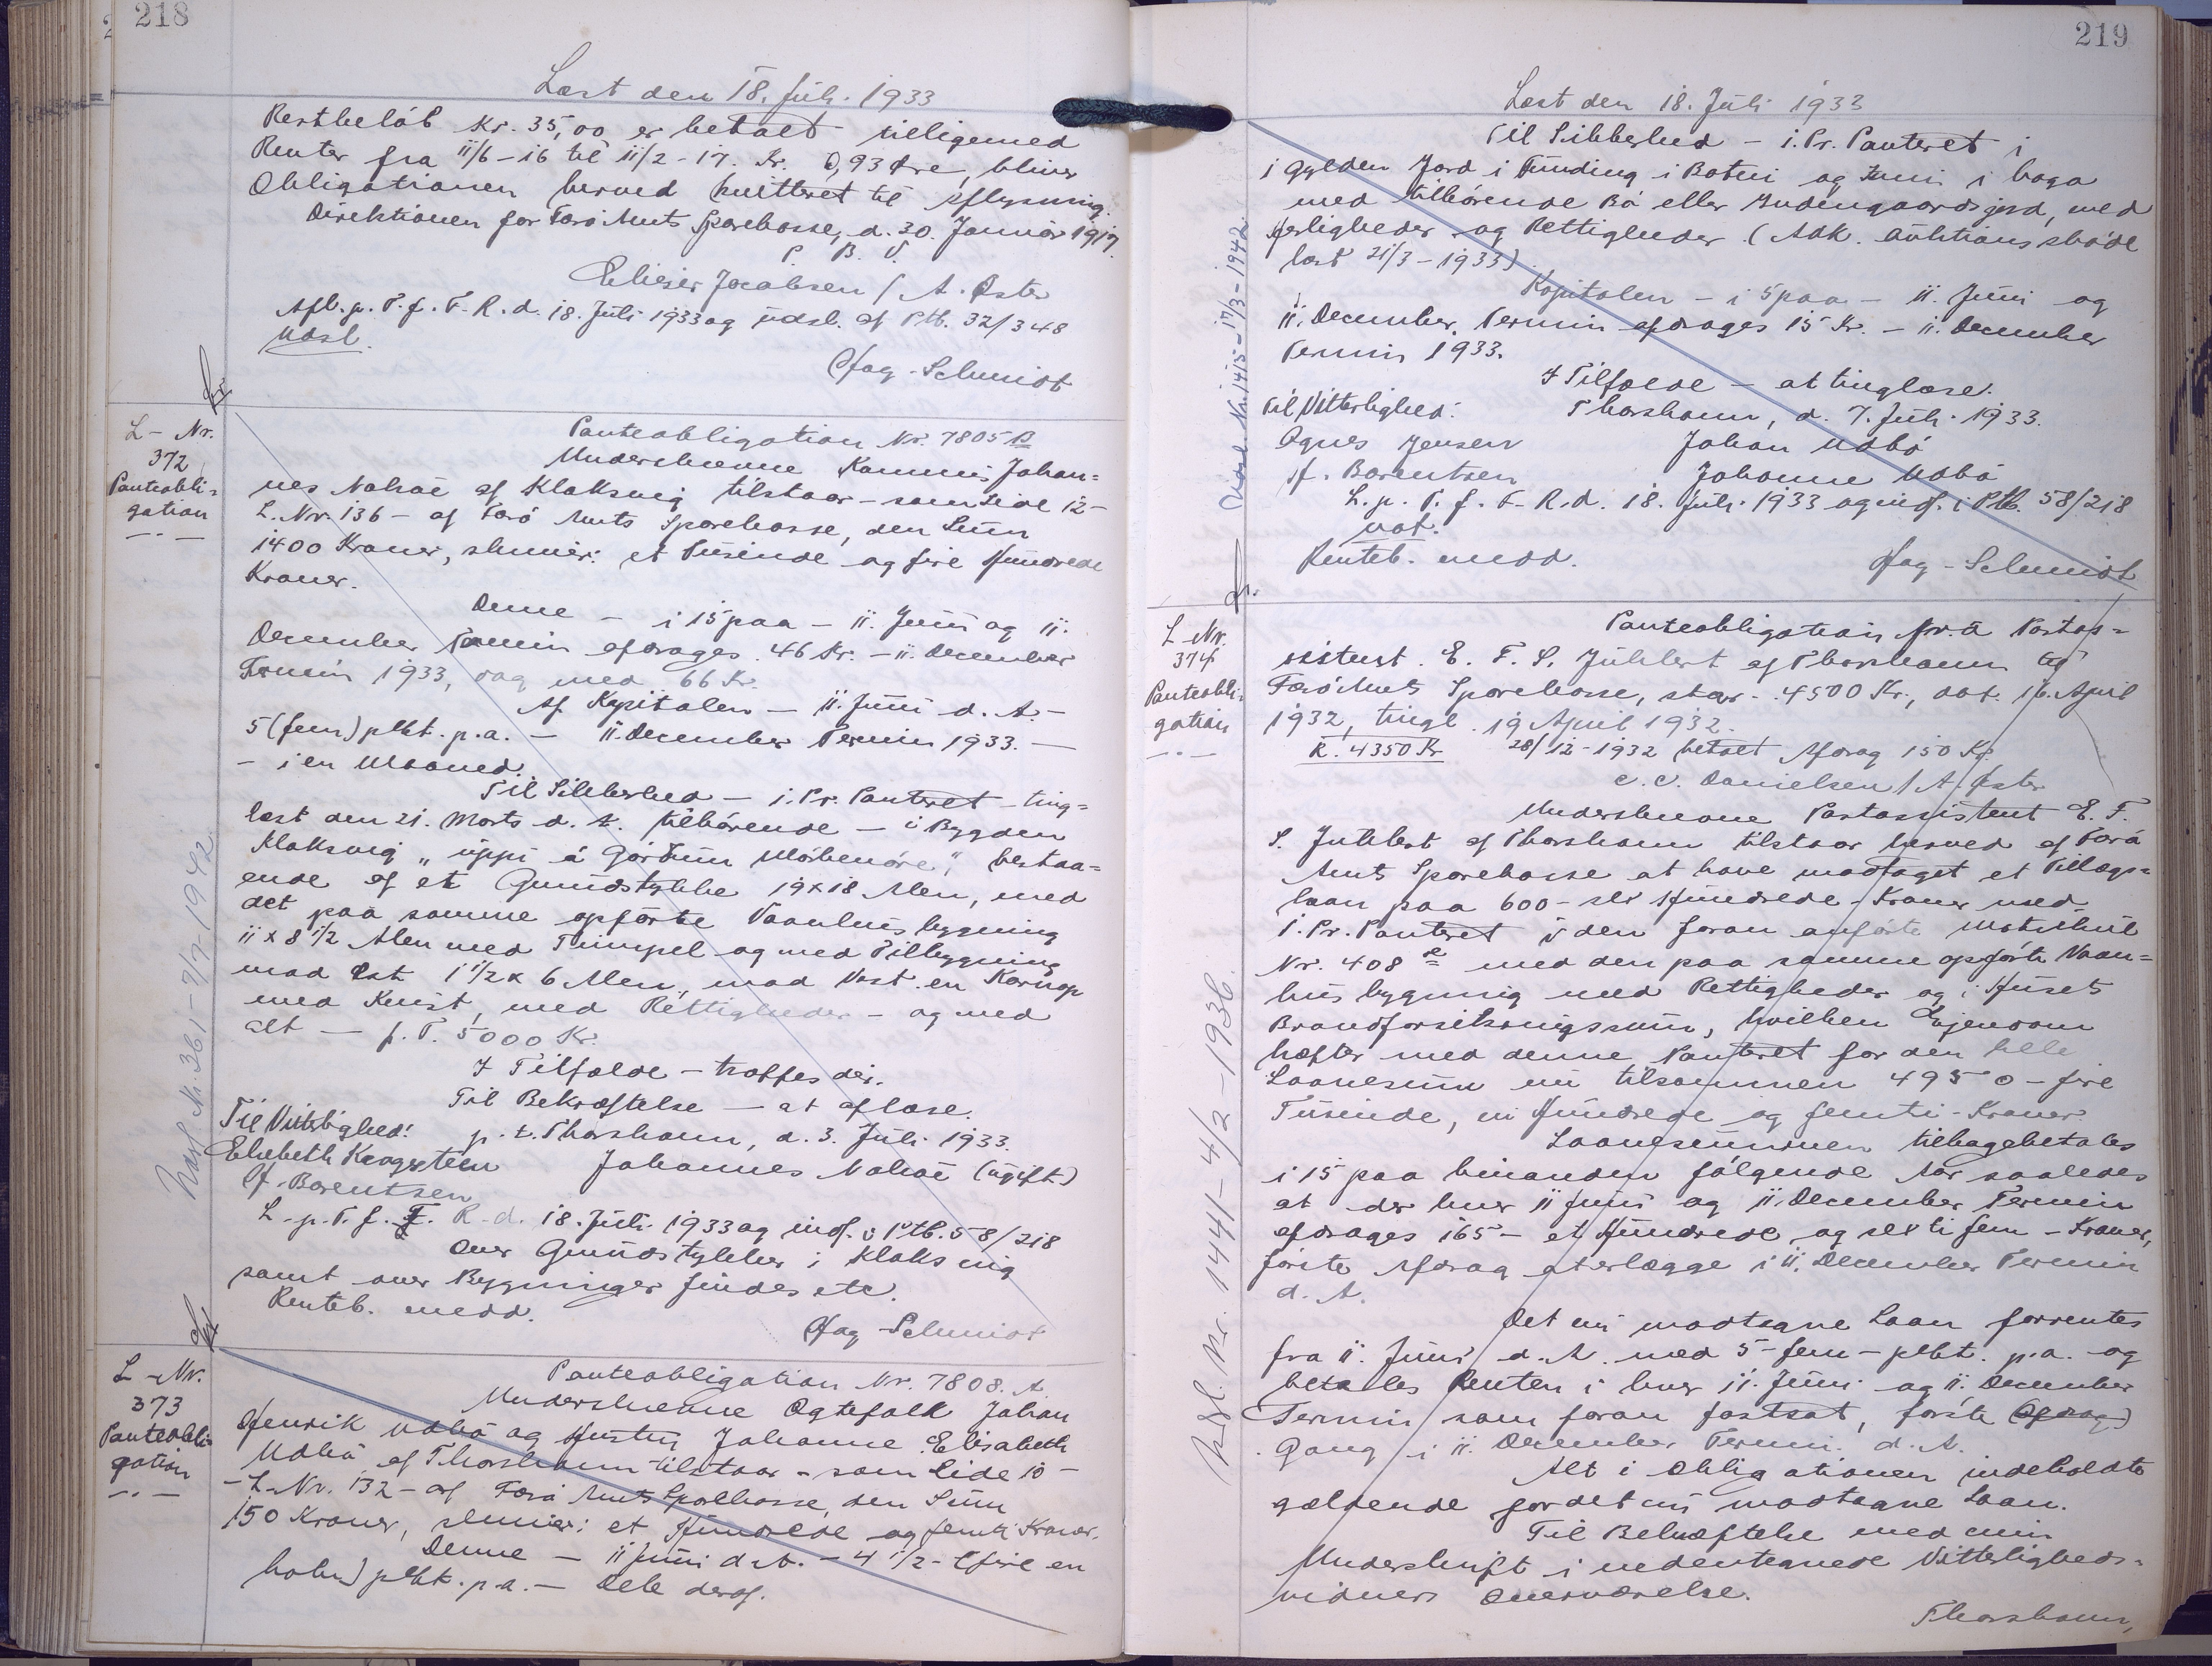 218
Læst den 18. Juli 1933
Restbeløb Kr. 35,00 er betalt tilligemed
Renter fra 11/6-16 til 11/2-17. Kr. 0,93 Øre, bliver
Obligationen herved kvitteret til Aflysning.
Direktionen for Færø Amts Sparekasse, d. 30. Januar 1917.
P. B. V.
Elieser Jacobsen / A. Øster
Afl. p. T. f. F. R. d. 18. Juli 1933 og udsl. af Ptb. 32/348
Udsl.
Hag-Schmidt
L-Nr.
372
Panteobli-
gation
Panteobligation Nr. 7805 B
Underskrevne Kommis Johan-
nes Nolsøe af Klaksvig tilstaar - som Side 12 -
L. Nr. 136 - af Færø Amts Sparekasse, den Sum
1400 Kroner, skriver: et Tusinde og fire Hundrede
Kroner.
Denne - i 15 paa - 11. Juni og 11.
December Termin afdrages 46 Kr. - 11. December
Termin 1933, dog med 66 Kr.
Af Kapitalen - 11. Juni d. A. -
5 (fem) pCt. p. a. - 11. December Termin 1933. -
- i en Maaned.
Til Sikkerhed - i. Pr. Panteret - ting-
læst den 21. Marts d. A. tilhørende - i Bygden
Klaksvig "uppi á Gørðum Mørkenóre", bestaa-
ende af et Grundstykke 19x18 Alen, med
det paa samme opførte Vaanhusbygning
11 x 8 1/2 Alen med Trimpel og med Tilbygning
mod Øst 1 1/2 x 6 Alen, mod Vest en Karnap
med Kvist, med Rettigheder - og med
alt - p. T. 5000 Kr.
I Tilfælde - træffes dèr.
Til Bekræftelse - at aflæse.
Til Vitterlighed: p. t. Thorshavn, d. 3. Juli 1933.
Elsebeth Kragesteen Johannes Nolsøe (ugift)
H. Berentsen
L. p. T. f. F. R. d. 18. Juli 1933 og indf. i Ptb. 58/218
Over Grundstykker i Klaksvig
samt over Bygninger findes etc.
Renteb. medd.
Hag-Schmidt
Udsl. Nr. 361 - 7/7-1942
L-Nr.
373
Panteobli-
gation
Panteobligation Nr. 7808. A.
Underskrevne Ægtefolk Johan
Henrik Udbø og Hustru Johanne Elisabeth
Udbø af Thorshavn tilstaar - som Side 10 -
- L. Nr. 132 - af Færø Amts Sparekasse, den Sum
150 Kroner, skriver: et Hundrede og femti Kroner.
Denne - 11 Juni d. A. - 4 1/2 - (fire en
halv) pCt. p. a. - Dele deraf.
219
Læst den 18. Juli 1933
Til Sikkerhed - i. Pr. Panteret i
1 Gylden Jord i Tunding i Botni og Tunni i haga
med tilhørende Bø eller Indengaardsjord, med
Herligheder og Rettigheder. (Adk. Auktionsskøde
læst 21/3-1933)
Kapitalen - i 5 paa - 11. Juni og
11. December Termin afdrages 15 Kr. - 11. December
Termin 1933.
I Tilfælde - at tinglæse.
Til Vitterlighed: Thorshavn, d. 7. Juli 1933.
Agnes Jensen Johan Udbø
H. Berentsen Johanne Udbø
L. p. T. f. F. R. d. 18. Juli 1933 og indf. i Ptb. 58/218
not.
Renteb. medd.
Hag-Schmidt
Udsl. Nr. 1415 - 17/3-1942.
L-Nr.
374
Panteobli-
gation
Panteobligation fra Postas-
sistent E. F. S. Juhlert af Thorshavn til
Færø Amts Sparekasse, stor 4500 Kr., dat. 16. April
1932, tingl. 19 April 1932.
R. 4350 Kr. 28/12-1932 betalt Afdrag 150 Kr.
C. C. Danielsen / A. Øster
Underskrevne Postassistent E. F.
S. Juhlert af Thorshavn tilstaar herved af Færø
Amts Sparekasse at have modtaget et Tillægs-
laan paa 600 - seks Hundrede - Kroner med
i. Pr. Panteret i den foran anførte Matrikul
Nr. 408 med den paa samme opførte Vaan-
husbygning med Rettigheder og i Husets
Brandforsikringssum, hvilken Ejendom
hæfter med denne Panteret for den hele
Laanesum nu tilsammen 4950 - fire
Tusinde, ni Hundrede og femti - Kroner.
Laanesummen tilbagebetales
i 15 paa hinanden følgende Aar saaledes
at der hver 11 Juni og 11. December Termin
afdrages 165 - et Hundrede og seksti fem - Kroner,
første Afdrag at erlægge i 11. December Termin
d. A.
Det nu modtagne Laan forrentes
fra 11. Juni d. A. med 5 - fem - pCt. p. a. og
betales Renten i hver 11. Juni og 11. December
Termin som foran fastsat, første (Afdrag)
Gang i 11. December Termin d. A.
Alt i Obligationen indeholdte
gældende for det nu modtagne Laan.
Til Bekræftelse med min
Underskrift i nedentegnede Vitterligheds-
vidners Overværelse.
Thorshavn,
Udsl. Nr. 1441 - 4/2-1936.